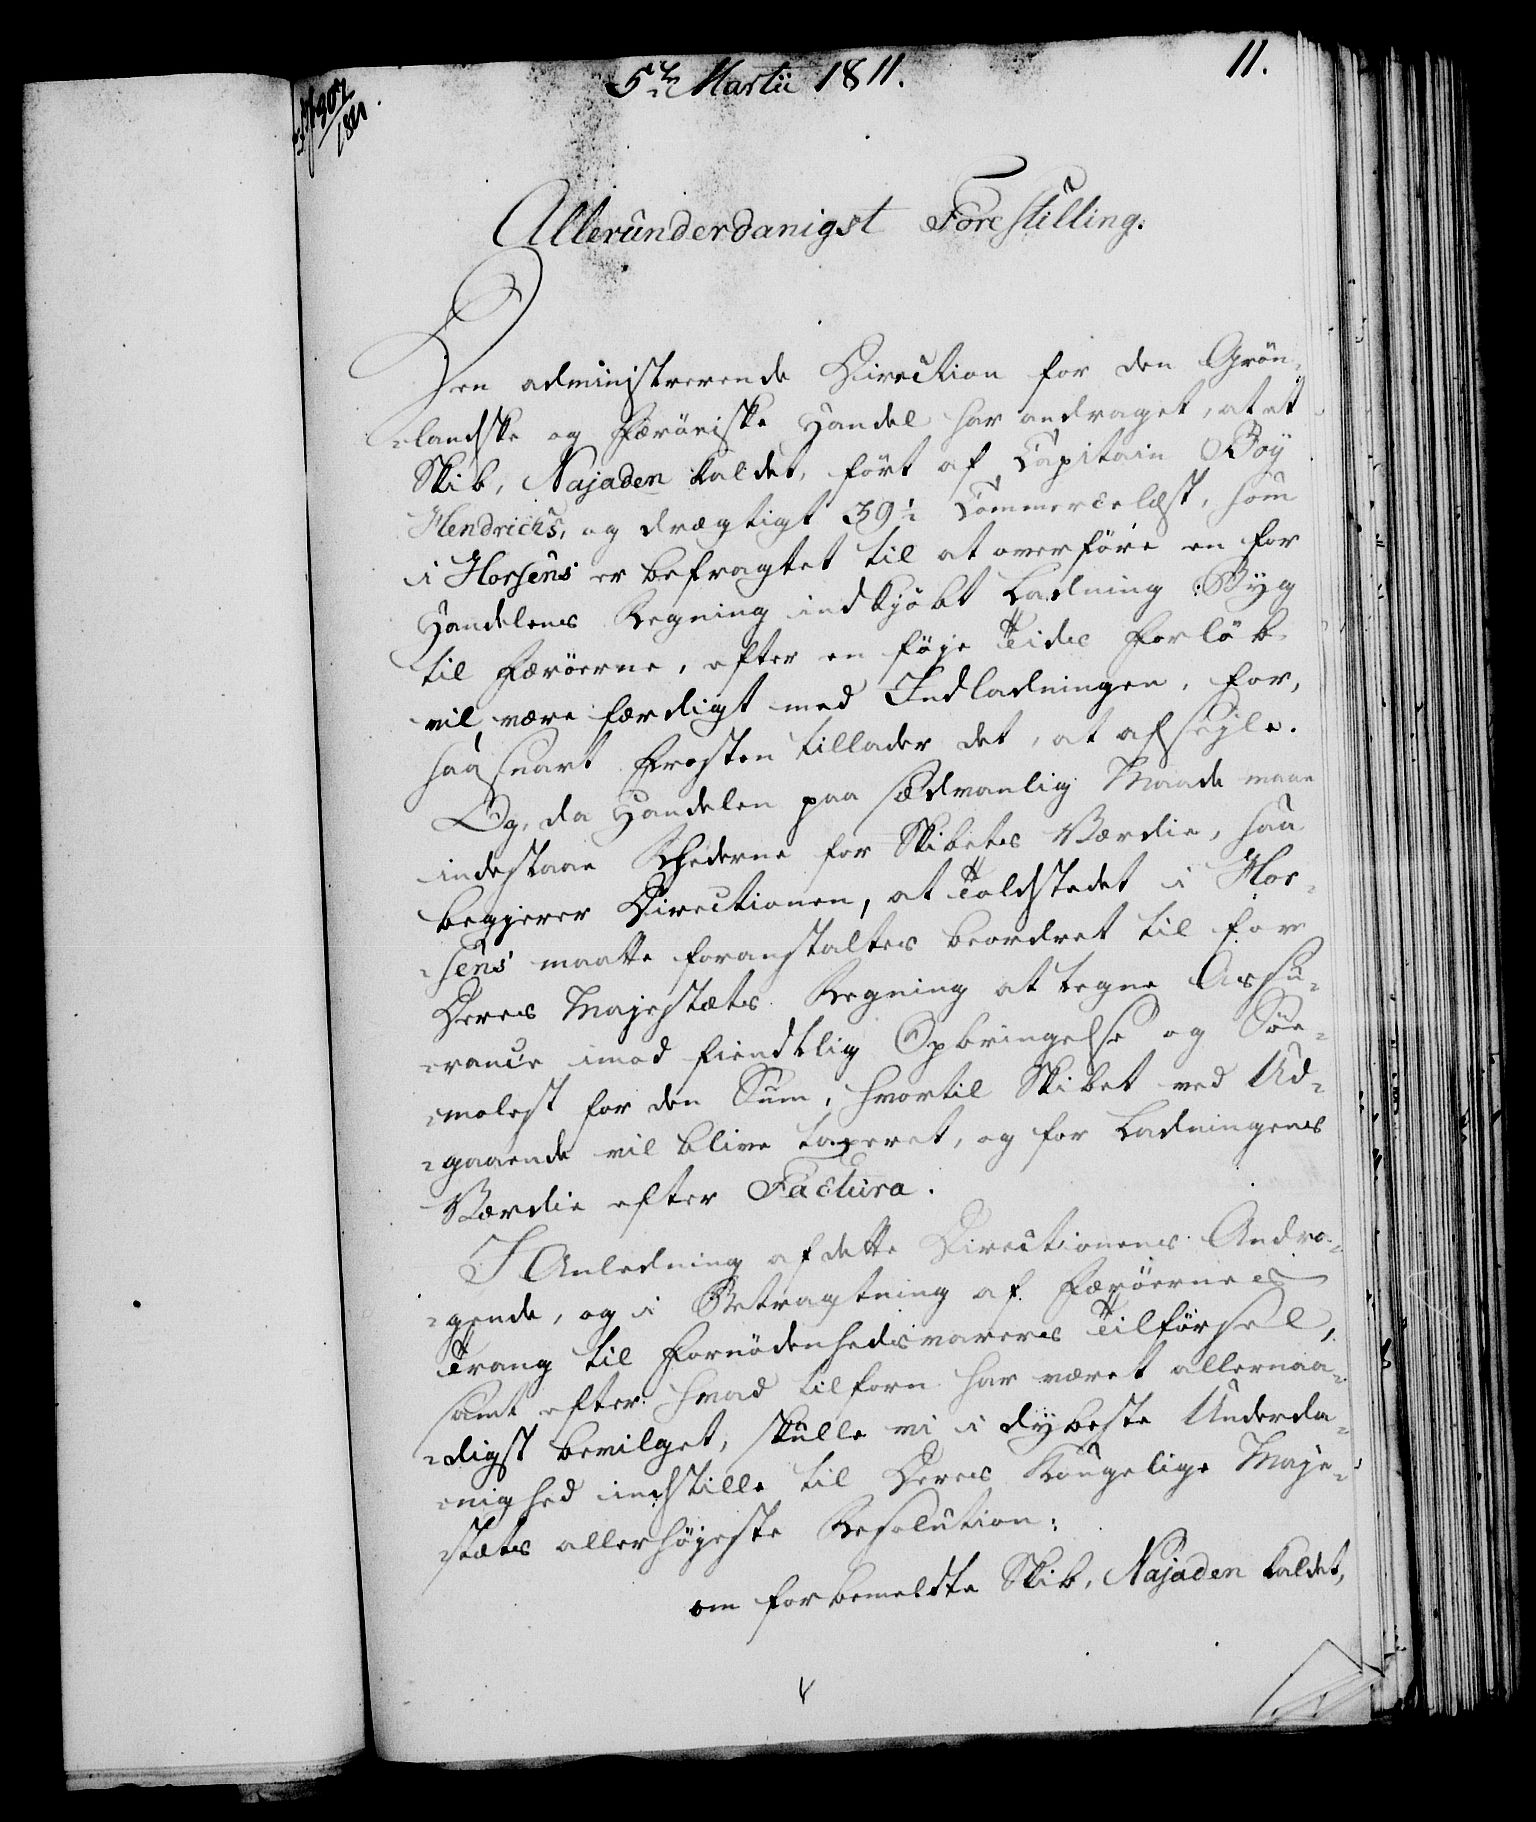 5te Martii 1811.
11.
302
1811.
Allerunderdanigst Forestilling.
Den administrerende Direction for den Grön-
-landske og Færöiske Handel har andraget, at et
Skib, Najaden kaldet, fört af Capitain Boy
Hendrichs, og drægtigt 39½ Commercelæst, som
i Horsens er befragtet til at overföre en for
Handelens Regning indkjöbt Ladning Byg
til Færöerne, efter en föje Tids Forlöb
vil være færdigt med Indladningen, for,
saasnart Frosten tillader det, at afsejle.
Og, da Handelen paa sædvanlig Maade maae
indestaae Rhederne for Skibets Værdie, saa
begjerer Directionen, at Toldstedet i Hor-
-sens maatte foranstaltes beordret til for
Deres Majestæts Regning at tegne Assu-
-rance imod fiendtlig Opbringelse og Söe-
-molest for den Sum, hvortil Skibet ved Ud-
-gaaende vil blive taxeret, og for Ladningens
Værdie efter Factura.
I Anledning af dette Directionens Andra-
-gende, og i Betragtning af Færöernes
Trang til Fornödenhedsvarers Tilförsel,
samt efter hvad tilforn har været allernaa-
-digst bevilget, skulle vi i dybeste Underda-
-nighed indstille til Deres Kongelige Maje-
-stæts allerhöjeste Resolution:
om forbemeldte Skib, Najaden kaldet,